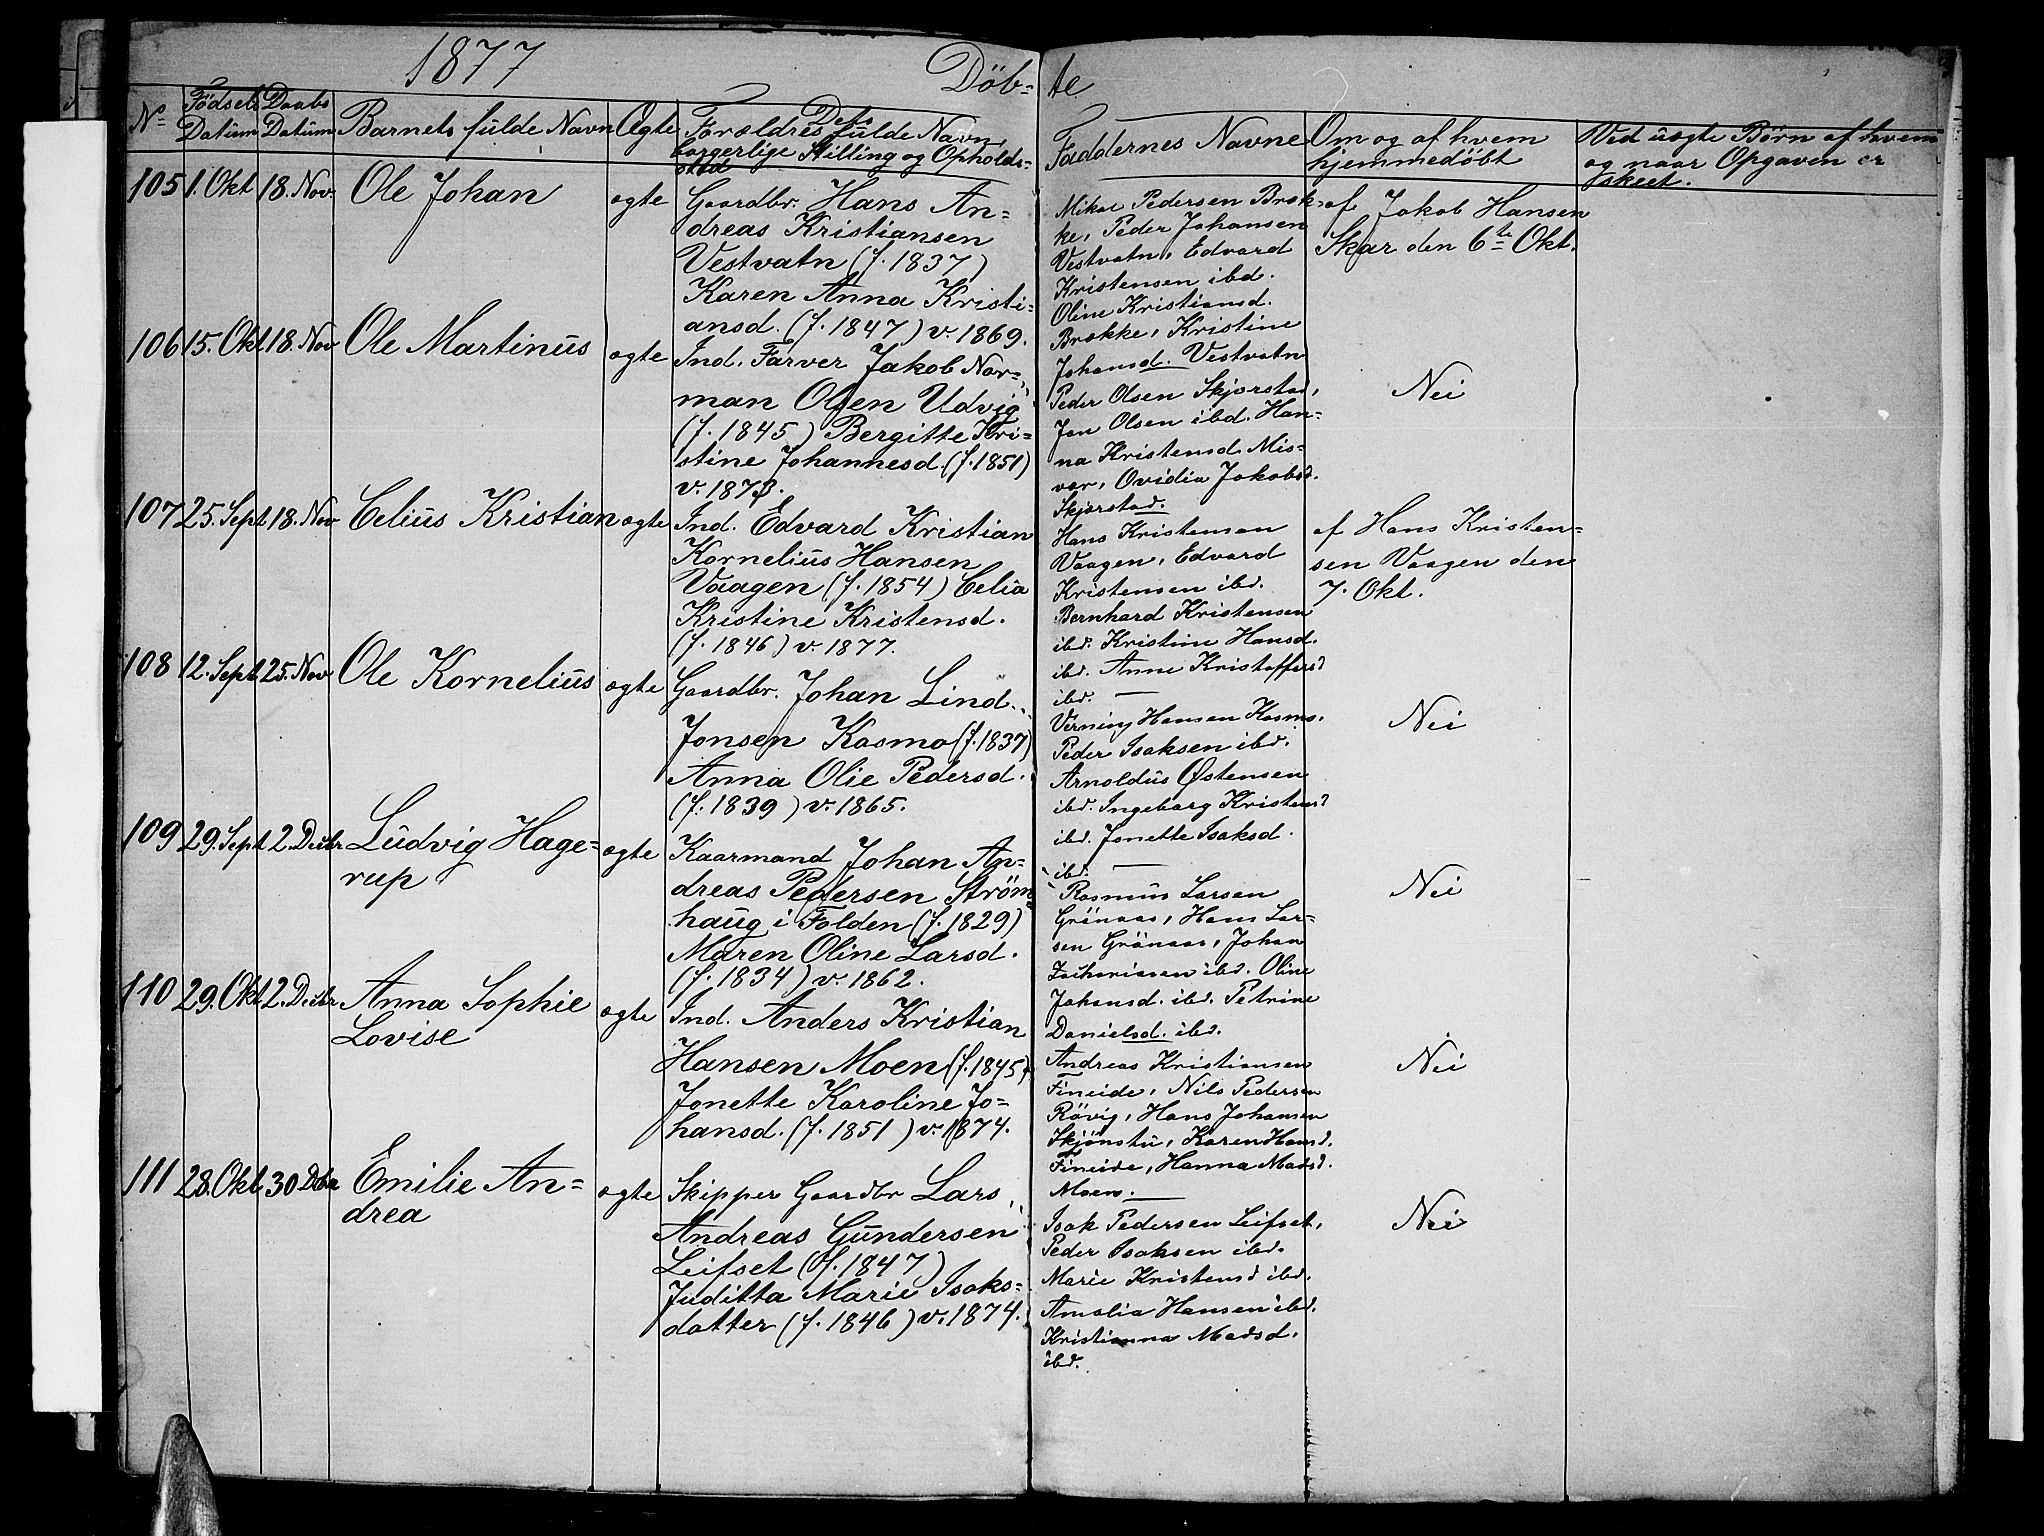 1877
Döb-
te
No
Födsels
Datum
Daabs
Datum
Barnets fulde Navn
Ægte
Forældres fulde Navn,
borgerlige Stilling og Opholds-
sted
Faddernes Navne
Om og af hvem
hjemmedöbt
Ved uægte Börn af hvem
og naar Opgaven er
skeet.
105 1. Okt 18. Nov. Ole Johan ægte
Gaardbr. Hans An-
dreas Kristiansen
Vestvatn (f. 1837)
Karen Anna Kristi-
ansd. (f. 1847) v. 1869.
Mikal Pedersen Bræk-
ke, Peder Johansen
Vestvatn, Edvard
Kristensen ibd.
Oline Kristiansd.
Brække, Kristine
Johansd. Vestvatn
af Jakob Hansen
Skar den 6te Okt.
106 15. Okt 18. Nov Ole Martinus ægte
Ind. Farver Jakob Nor-
man Olsen Udvig
(f. 1845) Bergitte Kri-
stine Johannesd. (f. 1851)
v. 1873.
Peder Olsen Skjorstad,
Jon Olsen ibd. Han-
na Kristensd. Mis-
vær, Ovidia Jakobsd.
Skjorstad.
Nei
107 25. Sept 18. Nov Celius Kristian ægte
Ind. Edvard Kristian
Kornelius Hansen
Vaagen (f. 1854) Celia
Kristine Kristensd.
(f. 1846) v. 1877.
Hans Kristensen
Vaagen, Edvard
Kristensen ibd.
Bernhard Kristensen
ibd. Kristine Hansd.
ibd. Anne Kristoffersd
ibd.
af Hans Kristen-
sen Vaagen den
7. Okt.
108 12. Sept 25. Nov Ole Kornelius ægte
Gaardbr. Johan Lind
Jonsen Kosmo (f. 1837)
Anna Olie Pedersd.
(f. 1839) v. 1865.
Verning Hansen Kosmo.
Peder Isaksen ibd.
Arnoldus Østensen
ibd. Ingeborg Kristensd
ibd. Jonette Isaksd.
ibd.
Nei
109 29. Sept 2. Decbr Ludvig Hage-
rup ægte
Kaarmand Johan An-
dreas Pedersen Ström-
haug i Folden (f. 1829)
Maren Oline Larsd.
(f. 1834) v. 1862.
Rasmus Larsen
Grönaas, Hans Lar-
sen Grönaas, Johan
Zachariasen ibd. Oline
Johansd. ibd. Petrine
Danielsd. ibd.
Nei
110 29. Okt 2. Decbr Anna Sophie
Lovise ægte
Ind. Anders Kristian
Hansen Moen (f. 1845)
Jonette Karoline Jo-
hansd. (f. 1851) v. 1874.
Andreas Kristiansen
Fineide, Nils Pedersen
Rövig, Hans Johansen
Skjönstu, Karen Hansd.
Fineide, Hanna Madsd.
Moen.
Nei
111 28. Okt 30 Debr Emilie An-
drea ægte
Skipper Gaardbr Lars
Andreas Gundersen
Leifset (f. 1847)
Juditta Marie Isaks-
datter (f. 1846) v. 1874.
Isak Pedersen Leifset,
Peder Isaksen ibd.
Marie Kristensd ibd.
Amalia Hansen ibd.
Kristianna Madsd.
ibd.
Nei